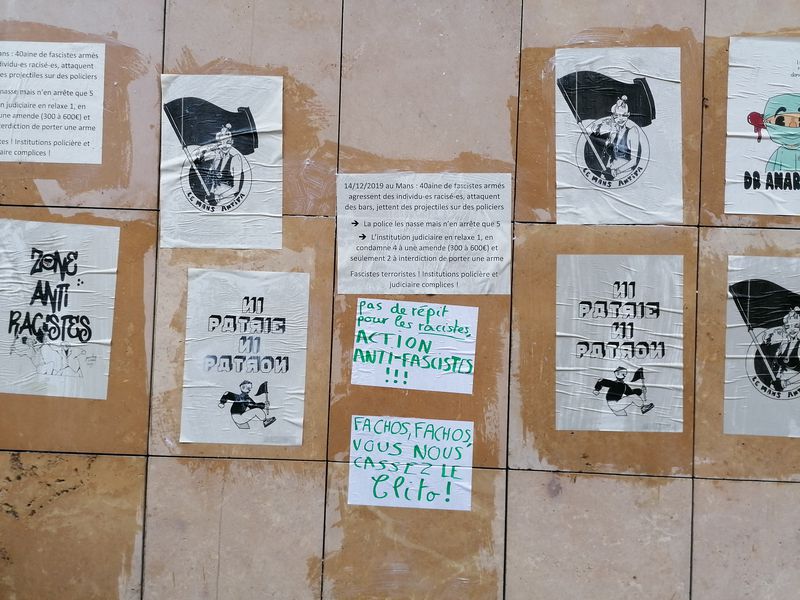 ans : 40aine de fascistes armés
dividu-es racisé-es, attaquent
es projectiles sur des policiers
nasse mais n'en arrête que 5
n judiciaire en relaxe 1, en
une amende (300 à 600€) et
interdiction de porter une arme
tes ! Institutions policière et
iaire complices !
ZONE
ANTI
RACISTES
LE MANS ANTIFA
NI
PATRIE
NI
PATRON
14/12/2019 au Mans : 40aine de fascistes armés
agressent des individu-es racisé-es, attaquent
des bars, jettent des projectiles sur des policiers
➔ La police les nasse mais n'en arrête que 5
➔ L'institution judiciaire en relaxe 1, en
condamne 4 à une amende (300 à 600€) et
seulement 2 à interdiction de porter une arme
Fascistes terroristes ! Institutions policière et
judiciaire complices !
pas de répit
pour les racistes,
ACTION
ANTI-FASCISTES
!!!
FACHOS, FACHOS,
VOUS NOUS
CASSEZ LE
Clito !
LE MANS ANTIFA
NI
PATRIE
NI
PATRON
DR ANAR
LE MANS ANTIFA